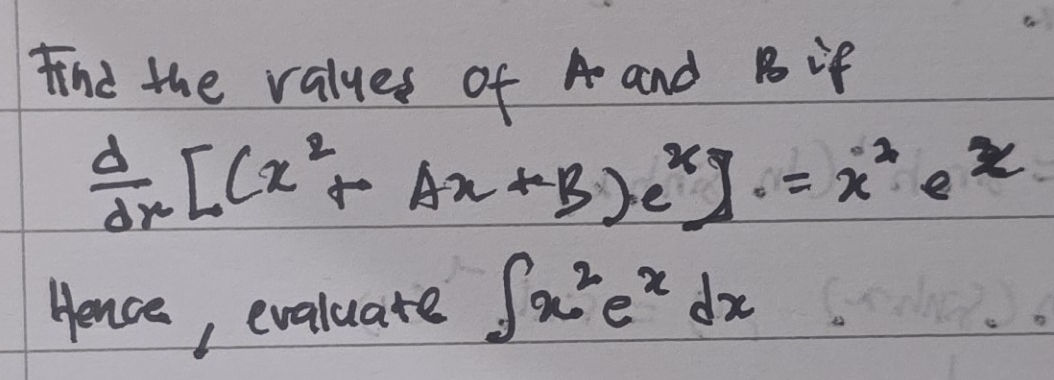 Find the values of A and B if
d/dx [(x² + Ax + B)eˣ] = x² eˣ
Hence, evaluate ∫x²eˣ dx